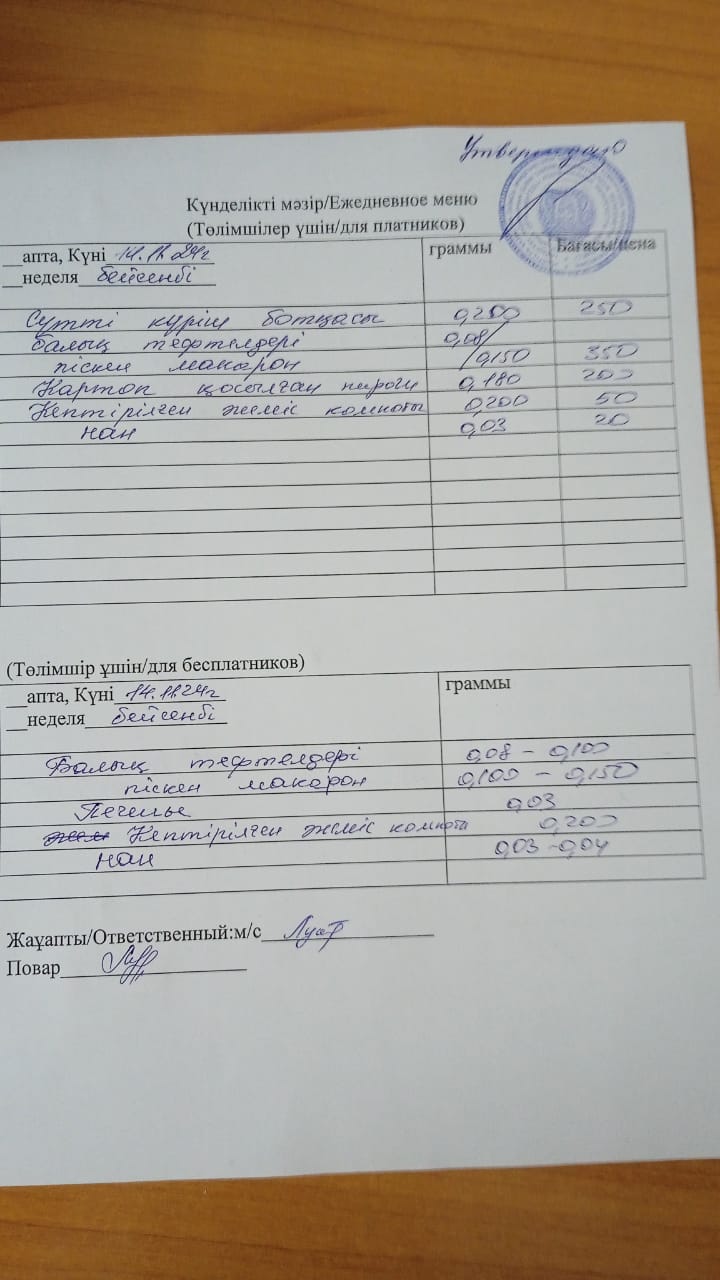 Утверждаю
Күнделікті мәзір/Ежедневное меню
(Төлімшілер үшін/для платников)
__апта, Күні 14.11.24г граммы Бағасы/цена
__неделя бейсенбі
Сүтті күріш ботқасы 0,200 250
Балық тефтелдері 0,08/
піскен макарон /0,150 350
Картоп қосылған пирогы 0,180 200
Кептірілген жеміс компоты 0,200 50
Нан 0,03 20
(Төлімшір ұшін/для бесплатников)
__апта, Күні 14.11.24г граммы
__неделя бейсенбі
Балық тефтелдері 0,08 - 0,100
піскен макарон 0,100 - 0,150
Печенье 0,03
Кептірілген жеміс компоты 0,200
Нан 0,03 -0,04
Жаұапты/Ответственный:м/с
Повар